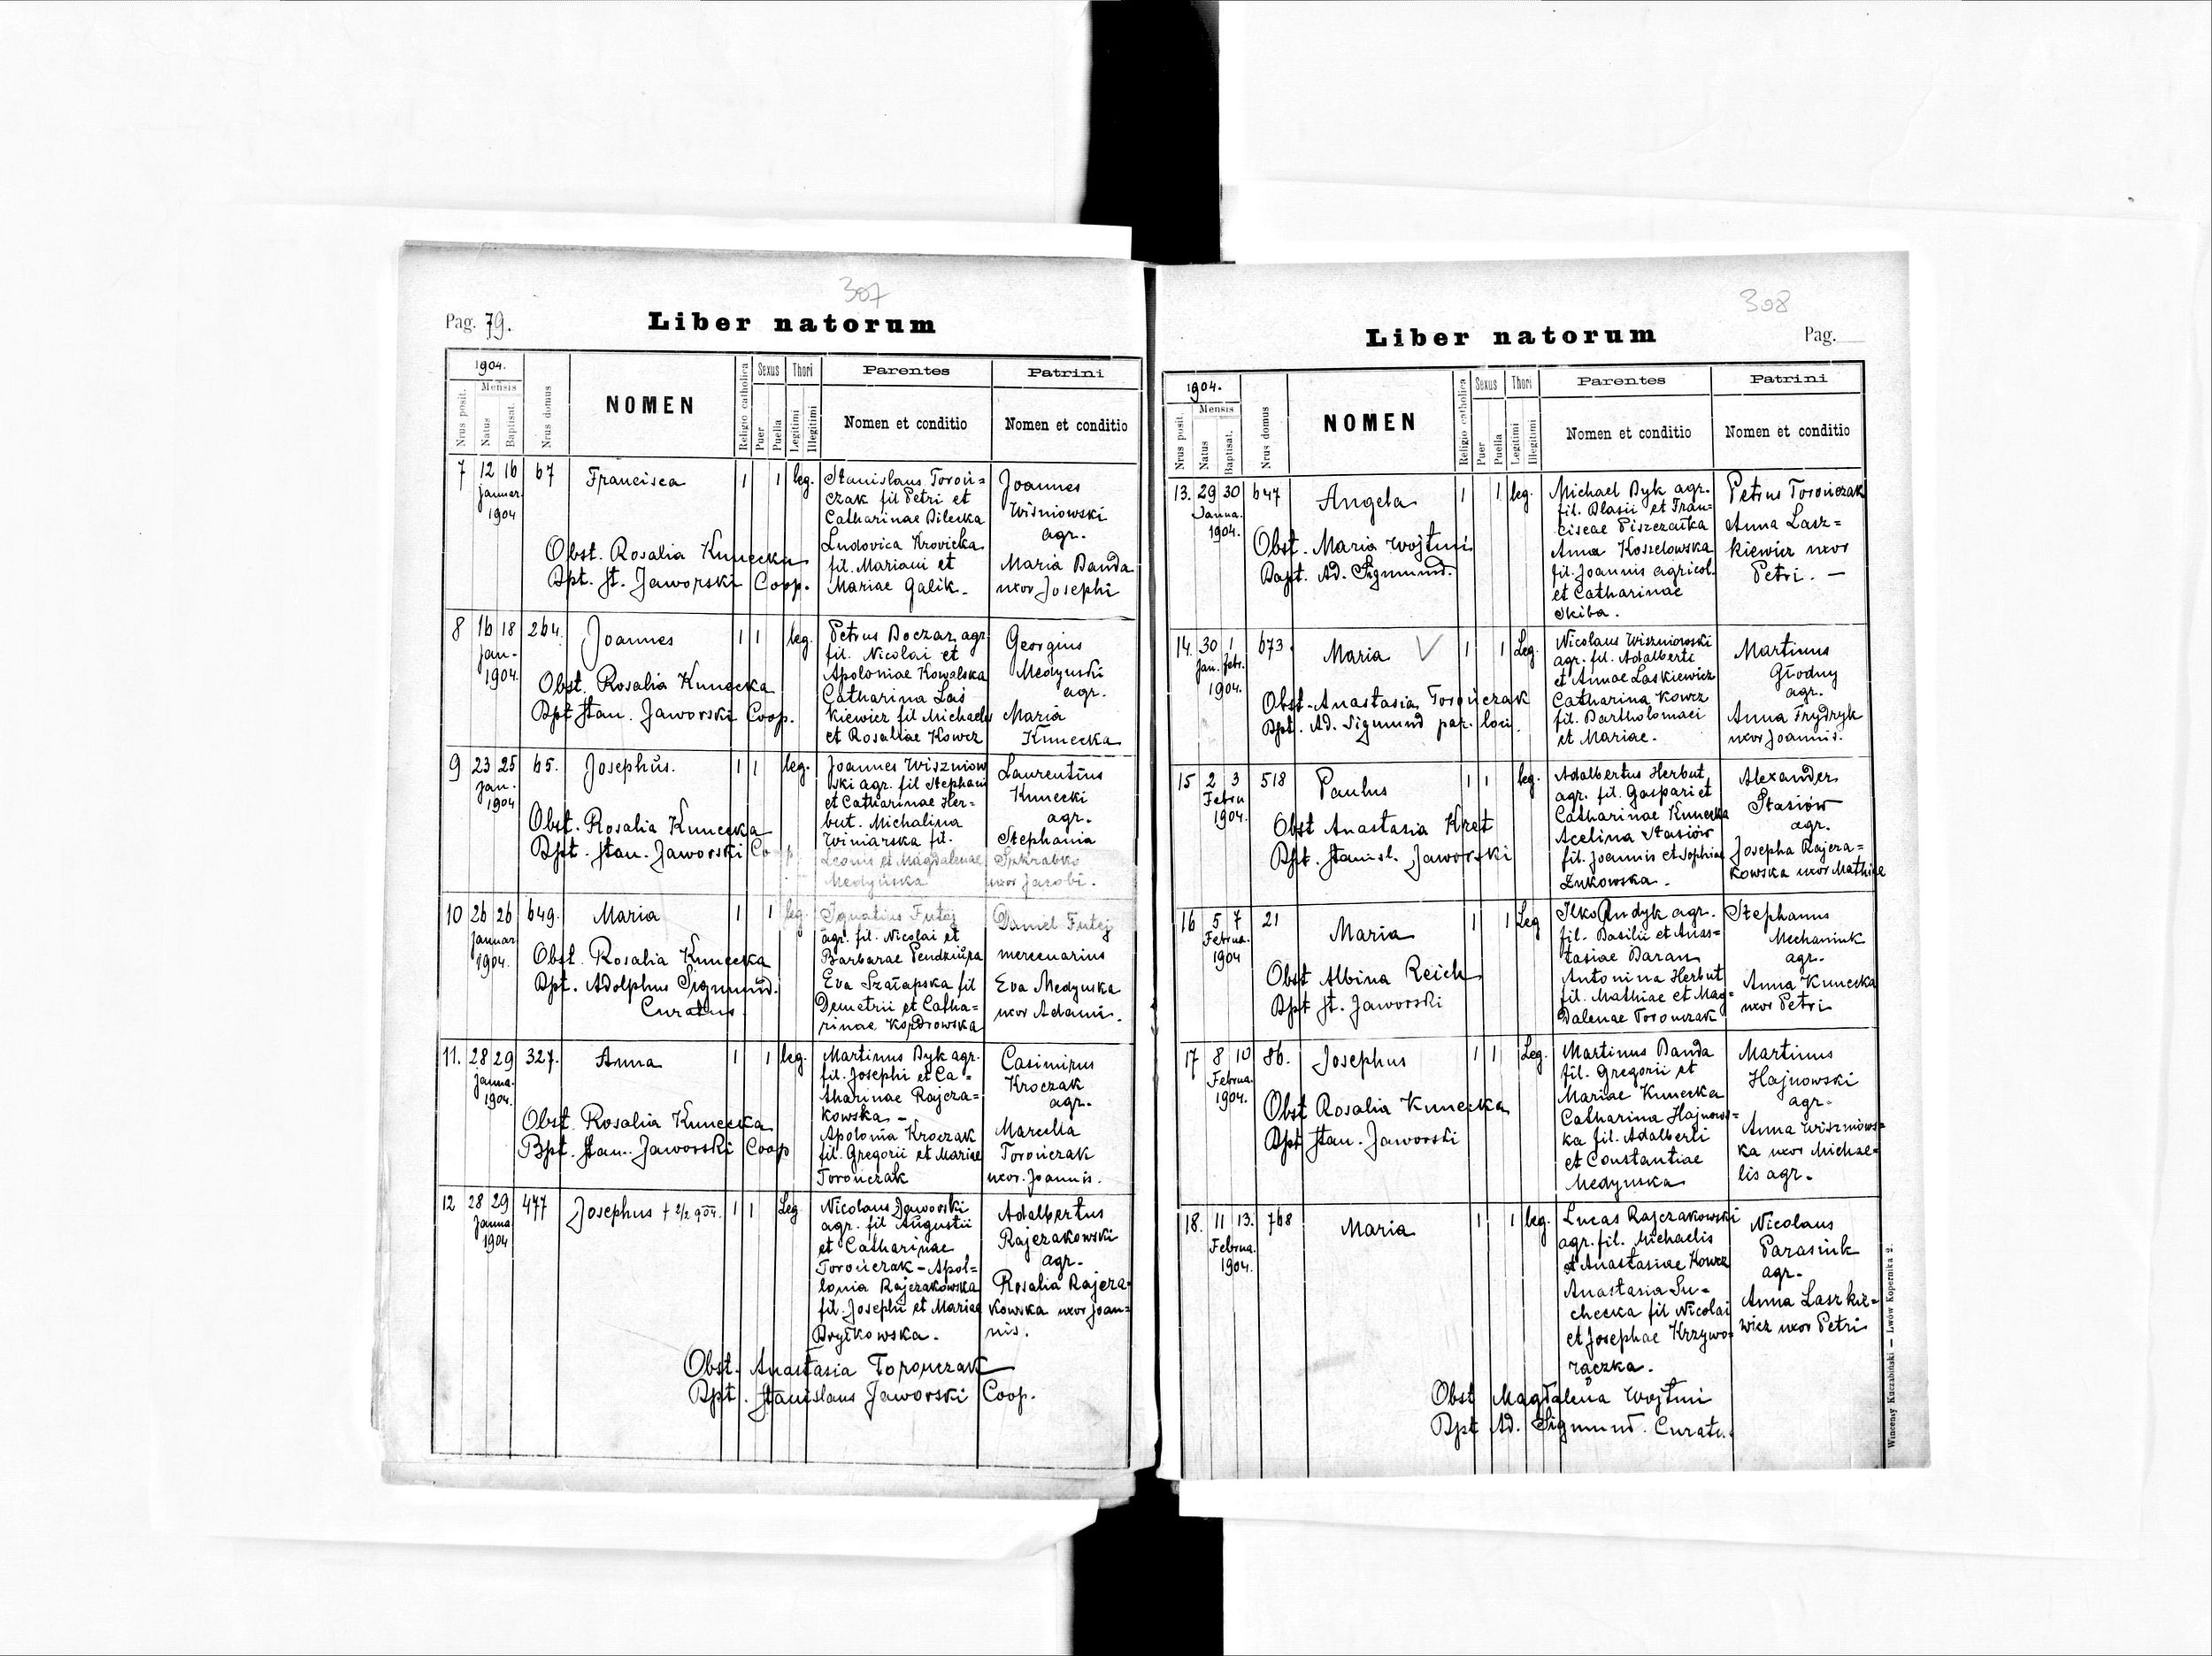 307
Pag. 79.
Liber natorum
1904.
Mensis
Nrus posit.
Natus
Baptisat.
Nrus domus
NOMEN
Religio catholica
Sexus
Puer
Puella
Thori
Legitimi
Illegitimi
Parentes
Nomen et conditio
Patrini
Nomen et conditio
7 12 16 67 Francisca 1 1 leg.
Januar.
1904
Stanislaus Toroń=
czak fil Petri et
Catharinae Bilecka
Ludovica Krovicka
fil. Mariani et
Mariae Galik.
Joannes
Wiśniowski
agr.
Maria Banda
uxor Josephi
Obst. Rosalia Kunecka
Bpt. St. Jaworski Coop.
8 16 18 264. Joannes 1 1 leg.
Jan.
1904.
Petrus Boczar agr.
fil. Nicolai et
Apoloniae Kowalska
Catharina Las
kiewicz fil Michaelis
et Rosaliae Kowcz
Georgius
Medynski
agr.
Maria
Kunecka
Obst. Rosalia Kunecka
Bpt Stan. Jaworski Coop.
9 23 25 65. Josephus. 1 1 leg.
Jan.
1904
Joannes Wiszniow
ski agr. fil Stephani
et Catharinae Her=
but. Michalina
Winiarska fil.
Leonis et Magdalenae
Medyńska
Laurentius
Kunecki
agr.
Stephania
uxor Jacobi.
Obst. Rosalia Kunecka
Bpt. Stan. Jaworski Coop.
10 26 26 649. Maria 1 1 leg.
Januar
1904.
Ignatius Futej
agr. fil. Nicolai et
Barbarae
Eva fil
Demetrii et Catha=
rinae
Daniel Futej
mercenarius
Eva Medynska
uxor Adami.
Obst. Rosalia Kunecka
Bpt. Adolphus Sigmund.
Curatus
11. 28 29 327. Anna 1 1 leg.
Janua.
1904.
Martinus Dyk agr.
fil. Josephi et Ca=
tharinae Rajcza=
kowska -
Apolonia Kroczak
fil. Gregorii et Mariae
Torończak
Casimirus
Kroczak
agr.
Marcella
Torończak
uxor. Joannis.
Obst. Rosalia Kunecka
Bpt. Stan. Jaworski Coop
12 28 29 477 Josephus † 2/2 904. 1 1 Leg
Janua
1904
Nicolaus Jaworski
agr. fil Augustii
et Catharinae
Torończak - Apol=
lonia Rajczakowska
fil. Josephi et Mariae
Adalbertus
Rajczakowski
agr.
Rosalia Rajcza=
kowska uxor Joan=
nis.
Obst. Anastasia Toronczak
Bpt. Stanislaus Jaworski Coop.
308
Liber natorum
Pag.
1904.
Mensis
Nrus posit.
Natus
Baptisat.
Nrus domus
NOMEN
Religio catholica
Sexus
Puer
Puella
Thori
Legitimi
Illegitimi
Parentes
Nomen et conditio
Patrini
Nomen et conditio
13. 29 30 647 Angela 1 1 leg.
Janua.
1904.
Michael Dyk agr.
fil. Blasii et Fran=
ciscae
Anna Koszelowska
fil. Joannis agricol.
et Catharinae
Skiba.
Petrus Torończak
Anna Lasz=
kiewicz uxor
Petri. -
Obst. Maria Wojtuń
Bapt. Ad. Sigmund.
14. 30 1 673. Maria V 1 1 Leg.
Jan. febr.
1904.
Nicolaus Wiszniowski
agr. fil. Adalberti
et Annae Laskiewicz
Catharina Kowcz
fil. Bartholomaei
et Mariae.
Martinus
Głodny
agr.
Anna Frydryk
uxor Joannis.
Obst. Anastasia Torończak
Bpt. Ad. Sigmund par. loci.
15 2 3 518 Paulus 1 1 leg.
Febru
1904.
Adalbertus Herbut
agr. fil. Gaspari et
Catharinae Kunecka
Acelina Stasiów
fil. Joannis et Sophiae
Żukowska.
Alexander
Stasiów
agr.
Josepha Rajcza=
kowska uxor Mathiae
Obst Anastasia Kret
Bpt. Stanisl. Jaworski
16 5 7 21 Maria 1 1 Leg
Februa.
1904
Ilko Rudyk agr.
fil. Basilii et Anas=
tasiae Baran
Antonina Herbut
fil. Mathiae et Mag=
dalenae Toronczak
Stephanus
Mechaniuk
agr.
Anna Kunecka
uxor Petri
Obst Albina Reich
Bpt St. Jaworski
17 8 10 86. Josephus 1 1 Leg.
Februa.
1904.
Martinus Banda
fil. Gregorii et
Mariae Kunecka
Catharina Hajnows=
ka fil. Adalberti
et Constantiae
Medynska
Martinus
Hajnowski
agr.
Anna Wiszniows=
ka uxor Michae=
lis agr.
Obst Rosalia Kunecka
Bpt Stan. Jaworski
18. 11 13. 768 Maria 1 1 leg.
Februa.
1904.
Lucas Rajczakowski
agr. fil. Michaelis
et Anastasiae Kowcz
Anastasia Su=
checka fil Nicolai
et Josephae Krzywo=
rączka.
Nicolaus
Parasiuk
agr.
Anna Laszkie=
wicz uxor Petri
Obst Magdalena Wojtuń
Bpt Ad. Sigmund. Curatu.
Wincenty Kuczabiński — Lwów Kopernika 2.